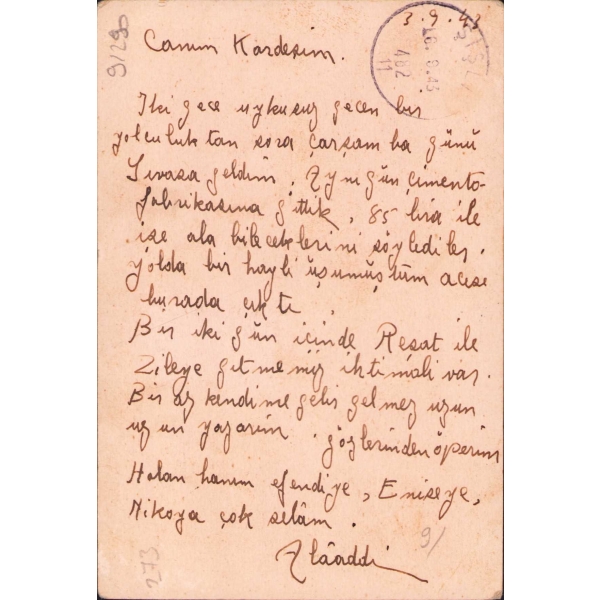 3.9.43
9129
Canım Kardeşim.
İki gece uykusuz geçen bir
yolculuktan sora çarşamba günü
Sıvasa geldim. Aynı gün çimento
fabrikasına gittik, 85 lira ile
işe ala bileceklerini söylediler.
Yolda bir hayli üşümüştüm acısı
burada çıktı.
Bir iki gün içinde Reşat ile
Zileye gitmemiz ihtimali var.
Bir az kendime gelir gelmez uzun
uzun yazarım. gözlerinden öperim
hanım efendiye, Eniseye,
Nikoya çok selâm.
Alâaddi
9/
273